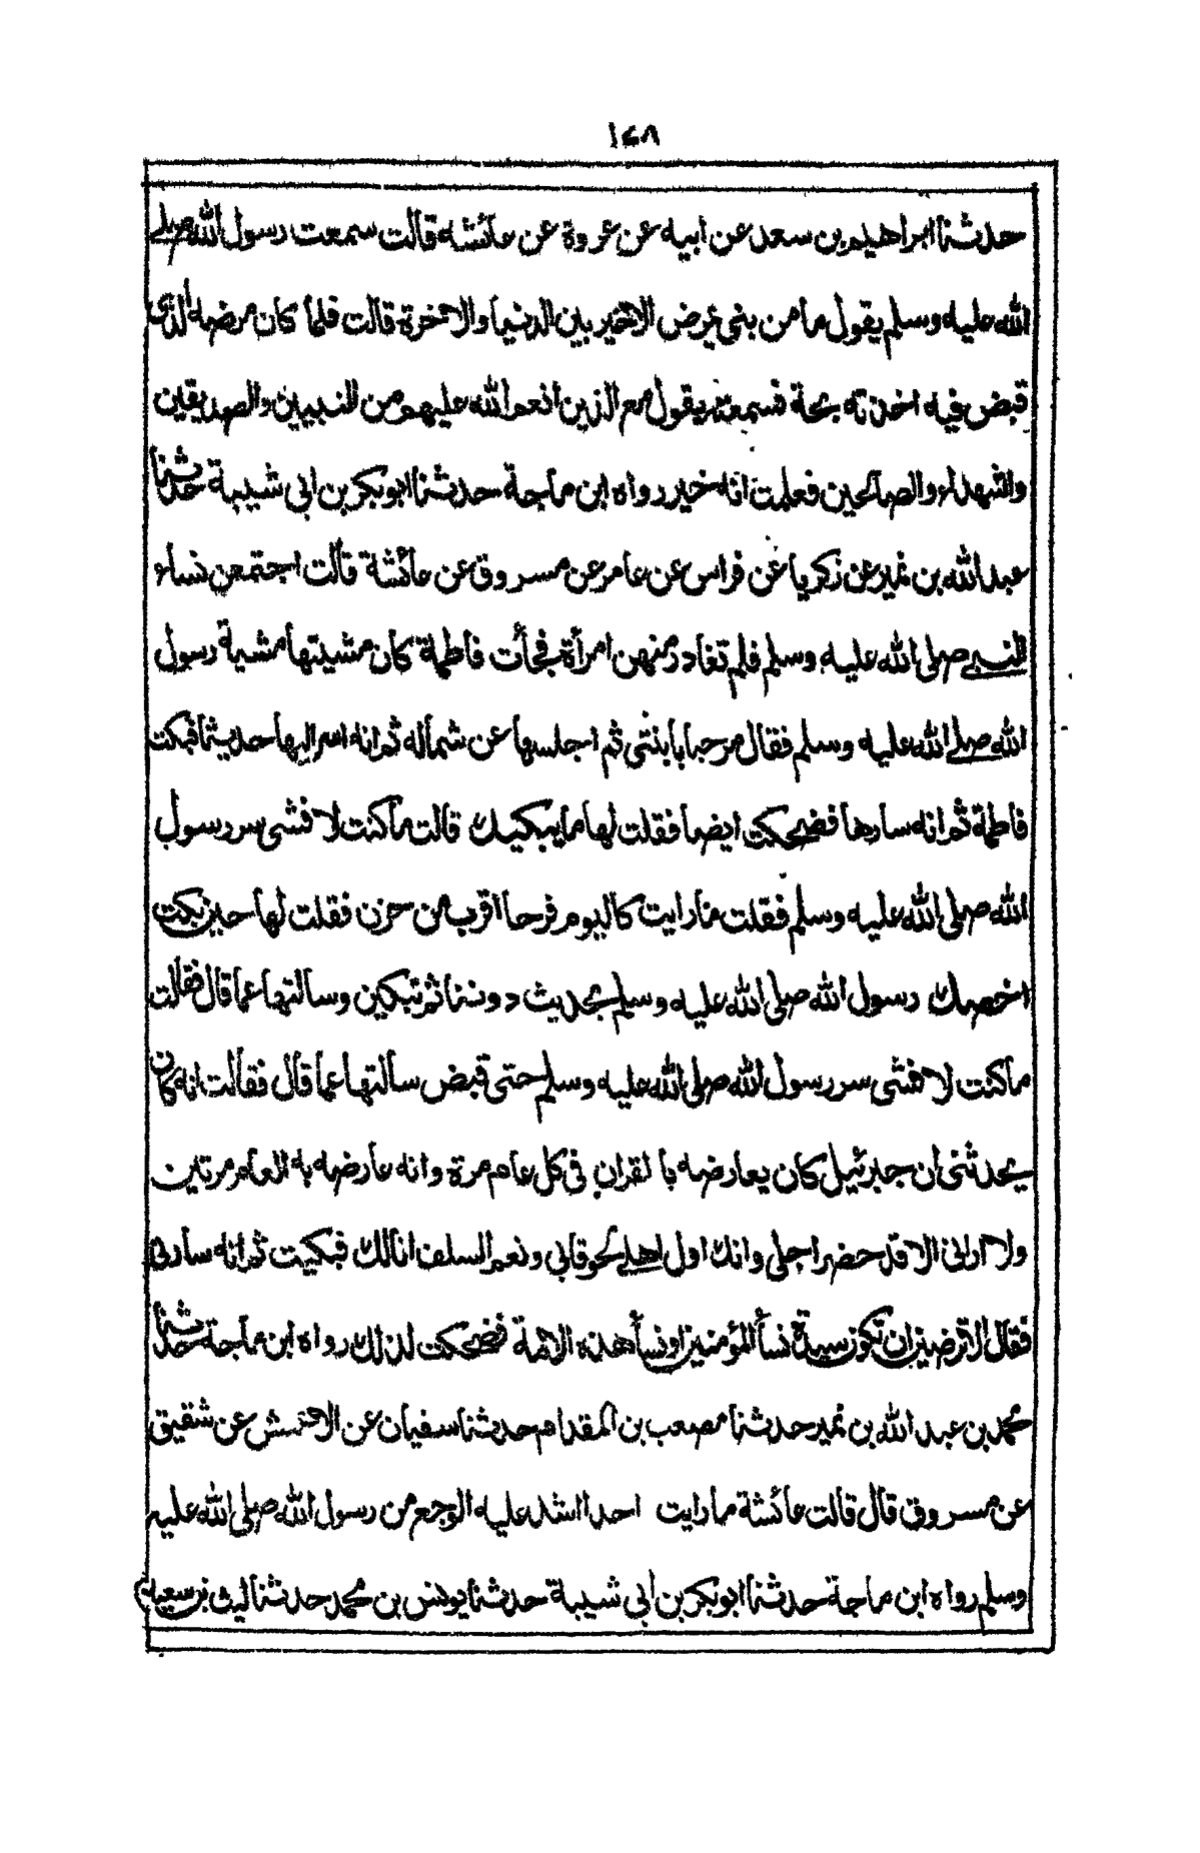 ١٤٨
حدثنا ابراهيم بن سعد عن ابيه عن عروة عن عائشه قالت سمعت رسول الله صلى
الله عليه وسلم يقول ما من بنى يمرض الاخير بين الدنيا والاخرة قالت فلما كان مرضه الذى
قبض فيه اخذته بحة فسمعته يقول مع الذين انعم الله عليهم من النبيين والصديقين
والشهداء والصالحين فعلمت انه خير رواه ابن ماجة حدثنا ابو بكر بن ابى شيبة حدثنا
عبد الله بن نمير عن زكريا عن فراس عن عامر عن مسروق عن عائشة قالت اجتمعن نساء
النبى صلى الله عليه وسلم فلم تغادر منهن امرأة فجأت فاطمة كان مشيتها مشية رسول
الله صلى الله عليه وسلم فقال مرحبا بابنتى ثم اجلسها عن شماله ثم انه اسر اليها حديثا فبكت
فاطمة ثم انه سارها فضحكت ايضا فقلت لها ما يبكيك قالت ما كنت لا فشى سر رسول
الله صلى الله عليه وسلم فقلت ما رايت كاليوم فرحا اقرب من حزن فقلت لها حين بكت
اخصك رسول الله صلى الله عليه وسلم بحديث دوننا ثم تبكين وسالتها عما قال فقالت
ما كنت لا فشى سر رسول الله صلى الله عليه وسلم حتى قبض سالتها عما قال فقالت انه كان
يحدثنى ان جبرئيل كان يعارضه بالقران فى كل عام مرة وانه عارضه به العام مرتين
ولا ارانى الا قد حضر اجلى وانك اول اهلى لحوقا بى ونعم السلف انا لك فبكيت ثم انه سارنى
فقال الا ترضين ان تكون سيدة نسأ المؤمنين او نسأ هذه الامة فضحكت لذلك رواه ابن ماجة حدثنا
محمد بن عبد الله بن نمير حدثنا مصعب بن المقدام حدثنا سفيان عن الاعمش عن شقيق
عن مسروق قال قالت عائشة ما رايت احدا اشد عليه الوجع من رسول الله صلى الله عليه
وسلم رواه ابن ماجة حدثنا ابو بكر بن أبى شيبة حدثنا يونس بن محمد حدثنا ليث بن سعد